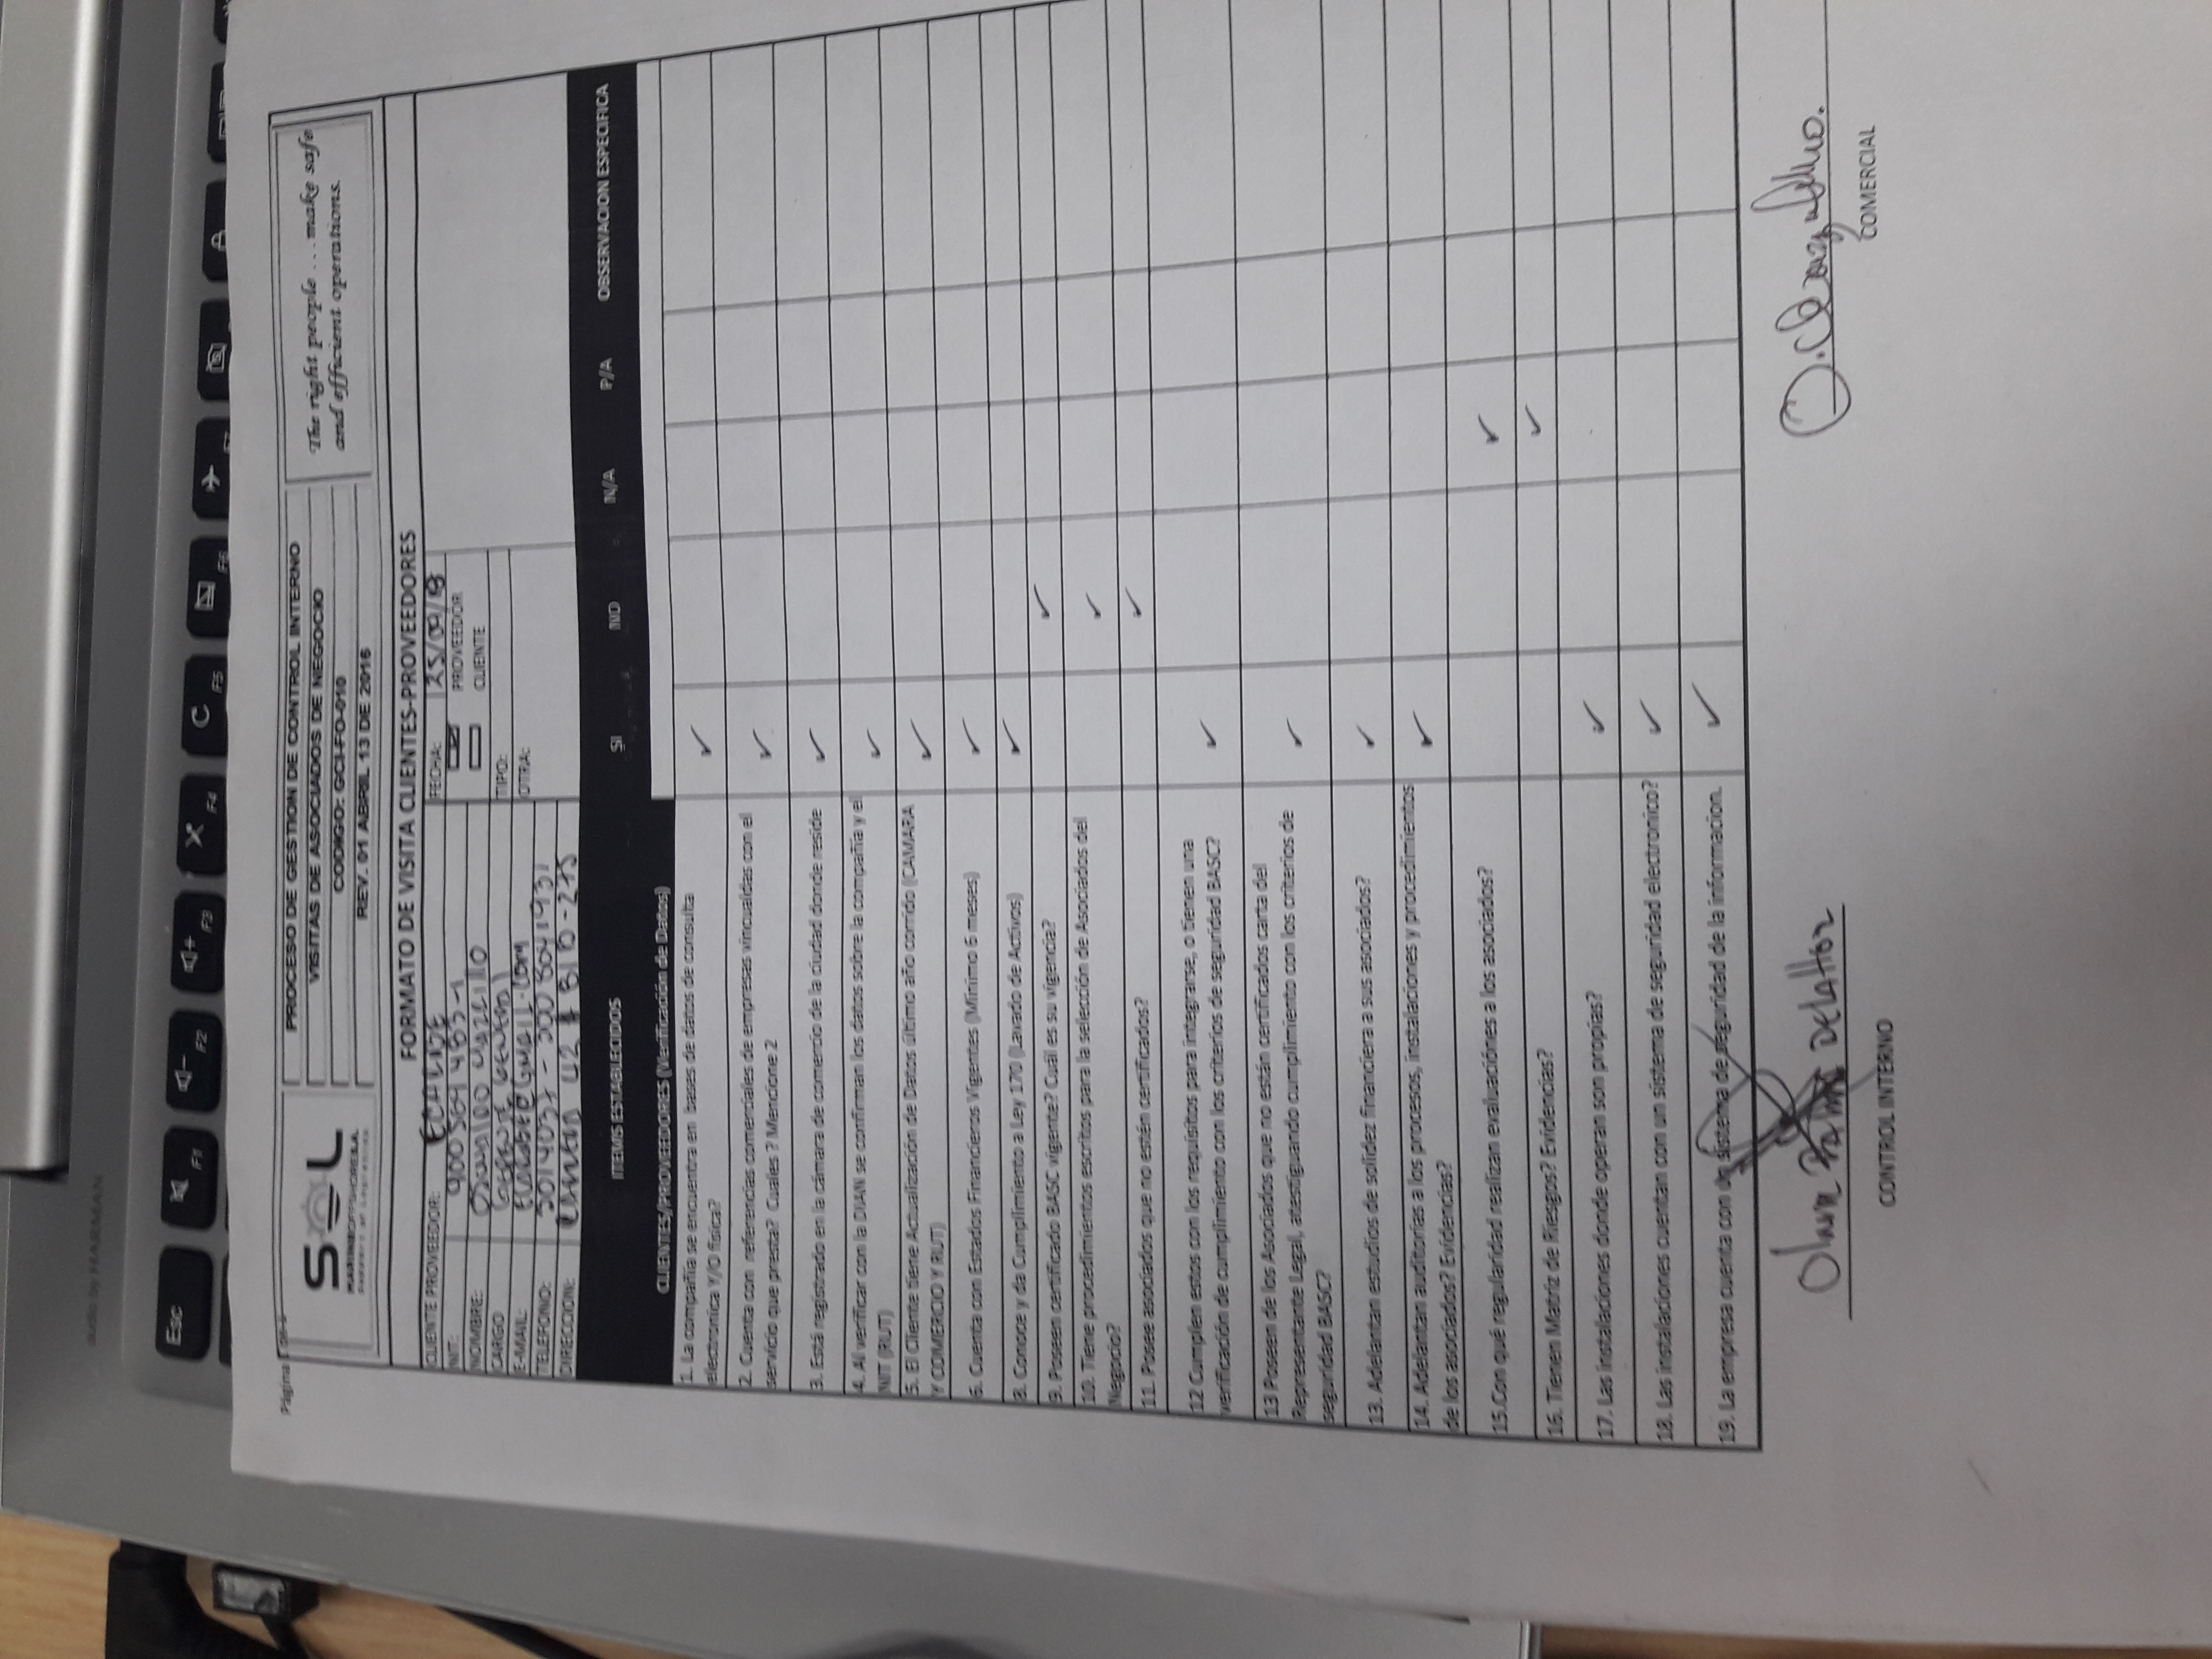 audio by HARMAN
Esc F1 F2 F3 F4 C F5 F6 F7
Página
SOL
MARINE OFFSHORE S.A.
PROCESO DE GESTION DE CONTROL INTERNO
VISITAS DE ASOCIADOS DE NEGOCIO
CODIGO: GCI-FO-010
REV. 01 ABRIL 13 DE 2016
The right people ...make safe
and efficient operations.
FORMATO DE VISITA CLIENTES-PROVEEDORES
CLIENTE PROVEEDOR: FECHA:
NIT: PROVEEDOR
NOMBRE: CLIENTE
CARGO Gerente General TIPO:
E-MAIL: OTRA:
TELEFONO:
DIRECCION:
ITEMS ESTABLECIDOS SI NO N/A P/A OBSERVACION ESPECIFICA
CLIENTES/PROVEEDORES (Verificación de Datos)
1. La compañía se encuentra en bases de datos de consulta
electronica Y/O física? ✓
2. Cuenta con referencias comerciales de empresas vincualdas con el
servicio que presta? Cuales ? Mencione 2 ✓
3. Está registrado en la cámara de comercio de la ciudad donde reside ✓
4. Al verificar con la DIAN se confirman los datos sobre la compañía y el
NIT (RUT) ✓
5. El Cliente tiene Actualización de Datos último año corrido (CAMARA
Y COMERCIO Y RUT) ✓
6. Cuenta con Estados Financieros Vigentes (Mínimo 6 meses) ✓
8. Conoce y da Cumplimiento a Ley 170 (Lavado de Activos) ✓
9. Poseen certificado BASC vigente? Cuál es su vigencia? ✓
10. Tiene procedimientos escritos para la selección de Asociados del
Negocio? ✓
11. Posee asociados que no estén certificados? ✓
12 Cumplen estos con los requisitos para integrarse, o tienen una
verificación de cumplimiento con los criterios de seguridad BASC? ✓
13 Poseen de los Asociados que no están certificados carta del
Representante Legal, atestiguando cumplimiento con los criterios de
seguridad BASC? ✓
13. Adelantan estudios de solidez financiera a sus asociados? ✓
14. Adelantan auditorías a los procesos, instalaciones y procedimientos
de los asociados? Evidencias? ✓
15.Con qué regularidad realizan evaluaciónes a los asociados? ✓
16. Tienen Matriz de Riesgos? Evidencias? ✓
17. Las instalaciones donde operan son propias? ✓
18. Las instalaciones cuentan con un sistema de seguridad electronico? ✓
19. La empresa cuenta con un sistema de seguridad de la informacion. ✓
CONTROL INTERNO
COMERCIAL